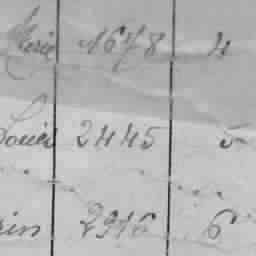 Marie 1678 4
Louis 2445 5
rin 2916 6